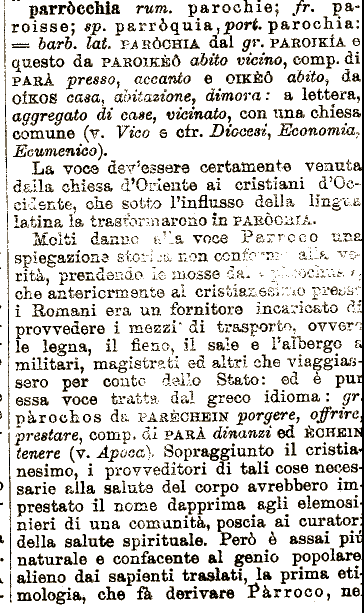 parròcchia rum. parochie; fr. pa-
roisse; sp. parròquia, port. parochia:
= barb. lat. PARÒCHIA dal gr. PAROIKÍA e
questo da PAROIKÈÔ abito vicino, comp. di
PARÀ presso, accanto e OIKÈÔ abito, da
OÍKOS casa, abitazione, dimora: a lettera,
aggregato di case, vicinato, con una chiesa
comune (v. Vico e cfr. Diocesi, Economia,
Ecumenico).
La voce dev'essere certamente venuta
dalla chiesa d'Oriente ai cristiani d'Oc-
cidente, che sotto l'influsso della lingua
latina la trasformarono in PARÒCHIA.
Molti danno alla voce Parroco una
spiegazione storica non conforme alla ve-
rità, prendendo le mosse dal
che anteriormente al cristianesimo presso
i Romani era un fornitore incaricato di
provvedere i mezzi di trasporto, ovvero
le legna, il fieno, il sale e l'albergo a
militari, magistrati ed altri che viaggias-
sero per conto dello Stato: ed è pur
essa voce tratta dal greco idioma: gr.
pàrochos da PARÈCHEIN porgere, offrire,
prestare, comp. di PARÀ dinanzi ed ÈCHEIN
tenere (v. Apoca). Sopraggiunto il cristia-
nesimo, i provveditori di tali cose neces-
sarie alla salute del corpo avrebbero im-
prestato il nome dapprima agli elemosi-
nieri di una comunità, poscia ai curatori
della salute spirituale. Però è assai più
naturale e confacente al genio popolare
alieno dai sapienti traslati, la prima eti-
mologia, che fà derivare Pàrroco, no